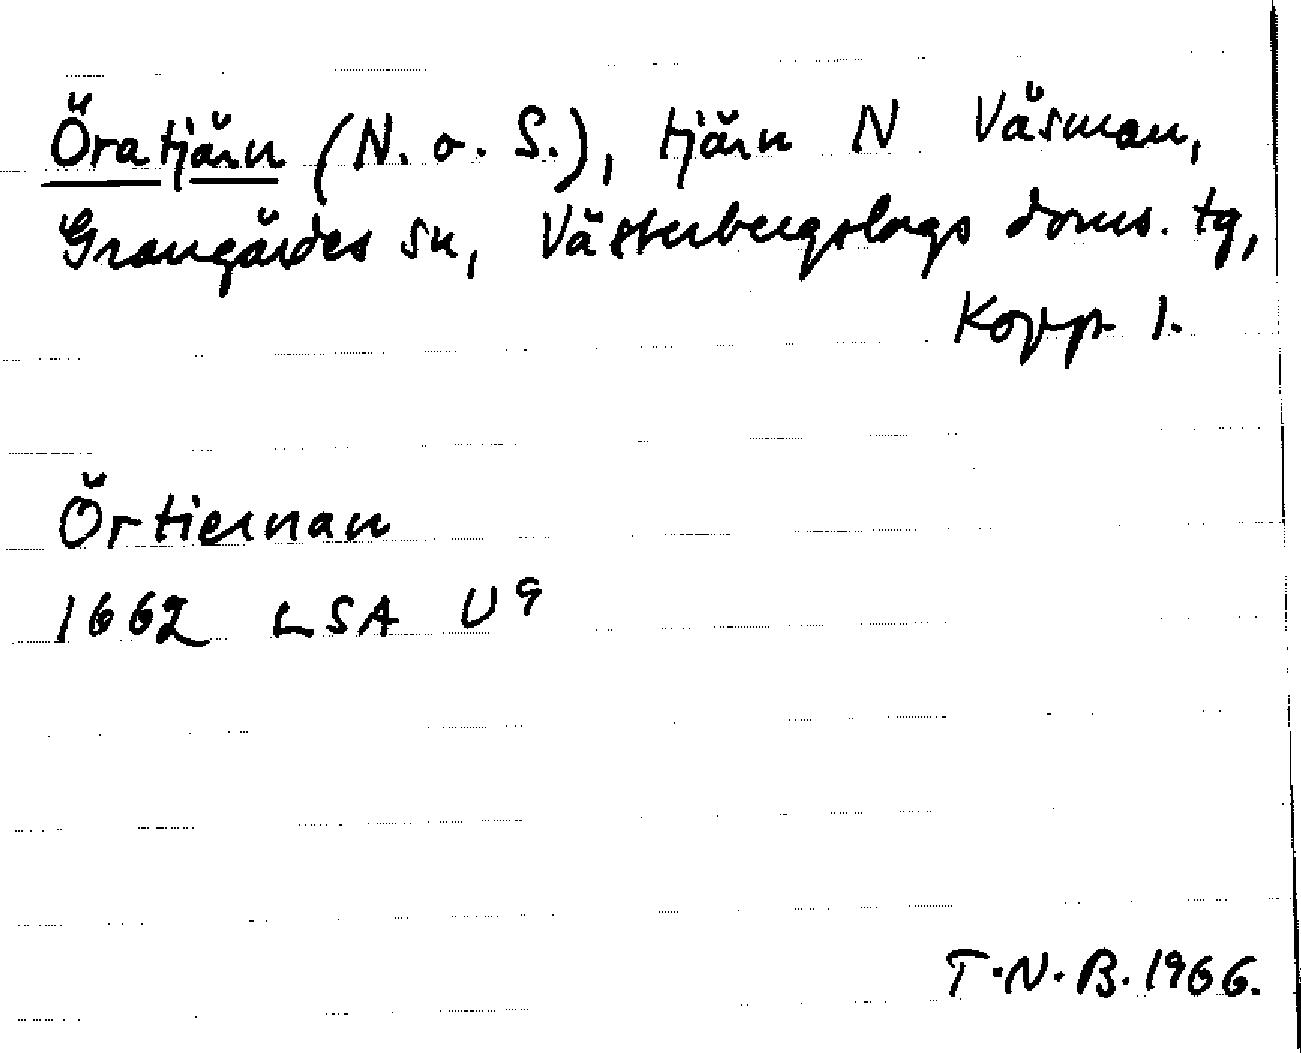 Öratjärn (N. o. S.), tjärn N Väsman,
Grangärdes sn, Västerbergslags doms. tg,
Kopp l.
Örtiernan
1662 LSA U9
T.N.B. 1966.